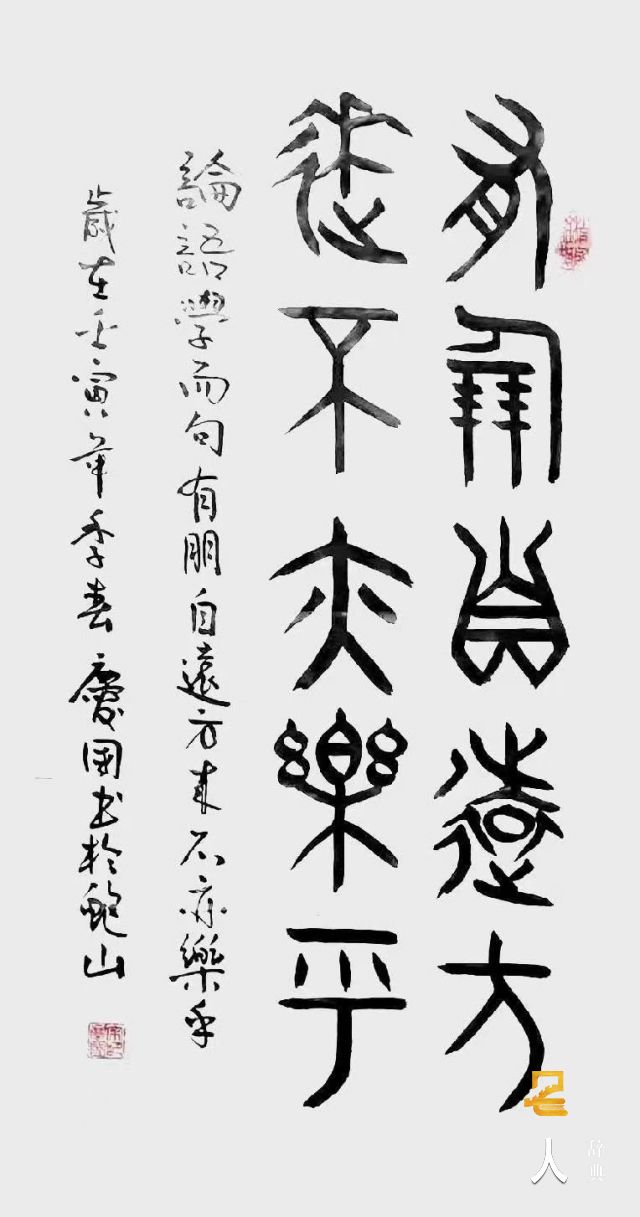 有朋自遠方
來不亦樂乎
論語學而句有朋自遠方來不亦樂乎
歲在壬寅年季春慶國書於鮑山
人
辞典